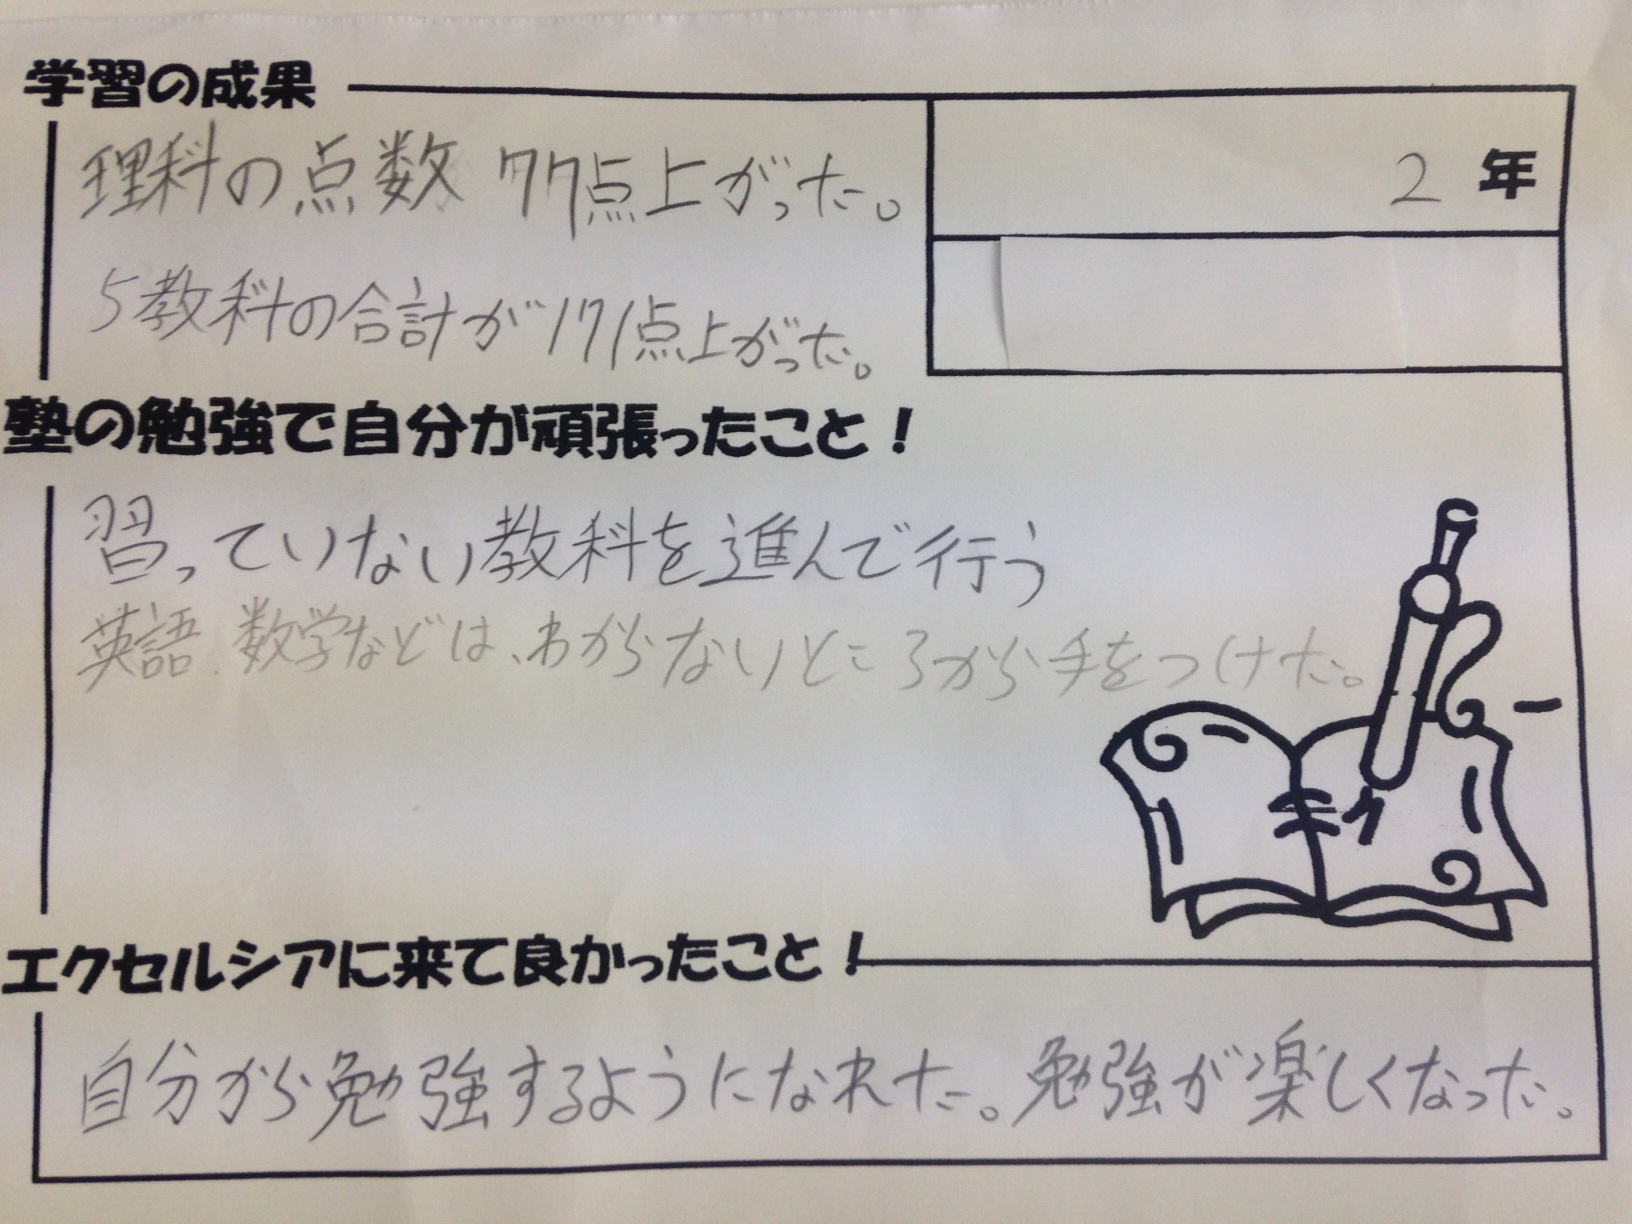 学習の成果
理科の点数 77点上がった。
2 年
5教科の合計が171点上がった。
塾の勉強で自分が頑張ったこと！
習っていない教科を進んで行う
英語、数学などは、わからないところから手をつけた。
エクセルシアに来て良かったこと！
自分から勉強するようになれた。勉強が楽しくなった。